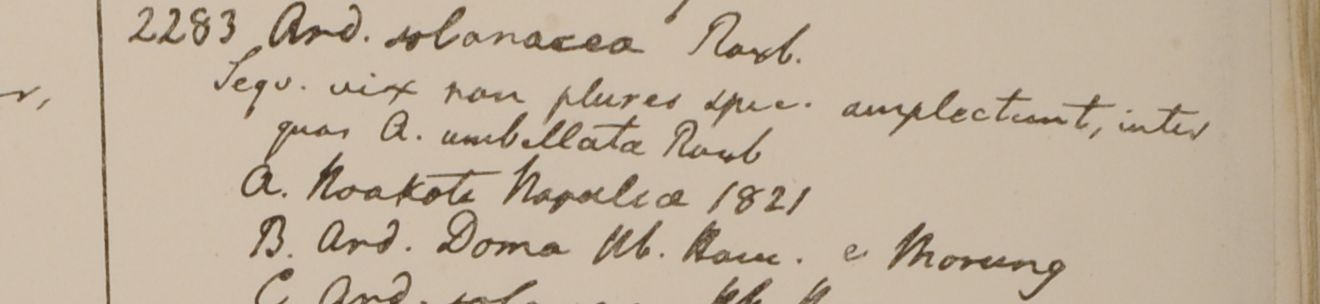 2283 Ard. solanacea Roxb.
Sequ. vix non plures spec. amplectunt, inter
r,
quas A. umbellata Roxb
A. Noakote Napalia 1821
B. Ard. Doma Hb. Ham. e Morung
C Ard. solanacea Hb. H